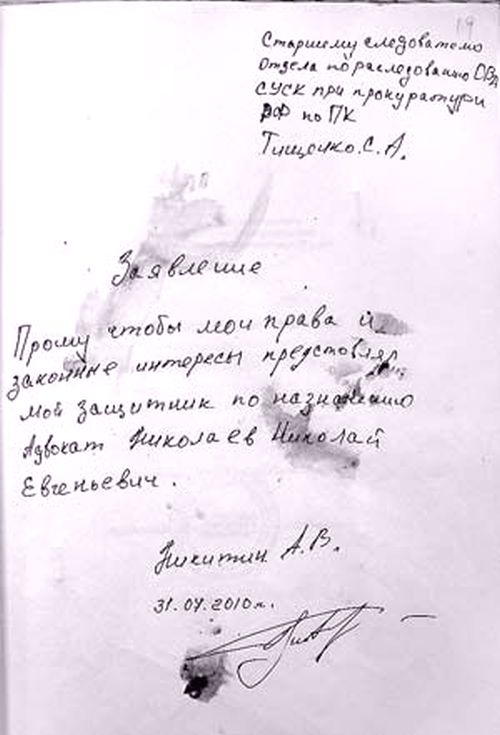 19
Старшему следователю
отдела по расследованию ОВД
СУСК при прокуратуры
РФ по ПК
Тищенко.С.А.
Заявление
Прошу чтобы мои права и
законные интересы представлял
мой защитник по назначению
Адвокат Николаев Николай
Евгеньевич.
Никитин А.В.
31.07.2010г.